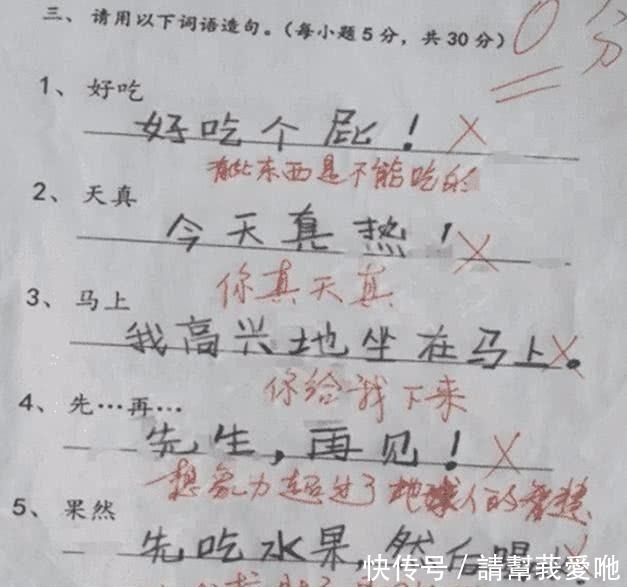 三、请用以下词语造句。(每小题5分,共30分)
0分
1、好吃
好吃个屁!
有些东西是不能吃的
2、天真
今天真热!
你真天真
3、马上
我高兴地坐在马上。
你给我下来
4、先…再…
先生,再见!
想象力超过了地球人的智慧
5、果然
先吃水果,然后喝
快传号/請幫莪愛吔